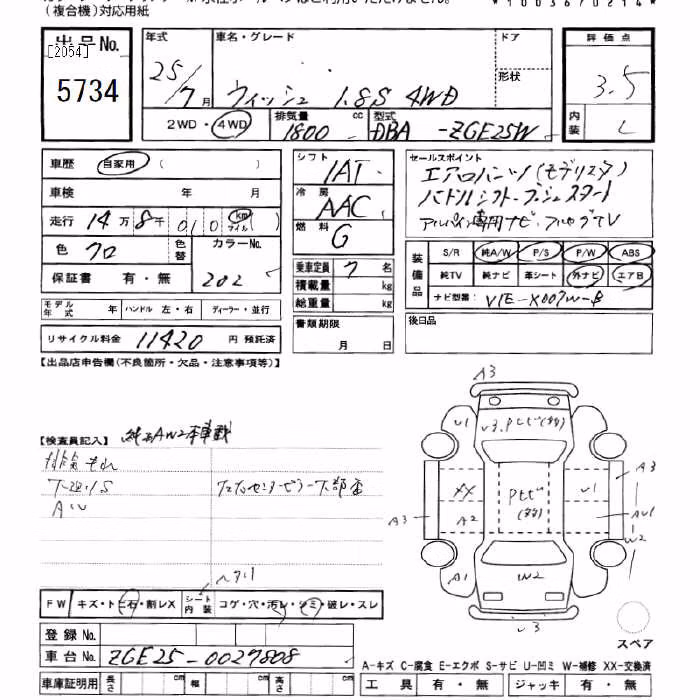 (複合機)対応用紙
*1003670214*
出品No.
[2054]
5734
年式
25/7月
車名・グレード
ウィッシュ 1.8S 4WD
ドア
形状
評価点
3.5
内装
C
2WD・4WD
排気量
1800 cc
型式
DBA -ZGE25W
車歴 自家用 ( )
車検 年 月
走行 14万8千010 km マイル ( )
色 クロ
色替
カラーNo.
202
保証書 有・無
シフト
IAT
冷房
AAC
燃料
G
乗車定員 7名
積載量 kg
総重量 kg
書類期限
月 日
セールスポイント
エアロバンパー(モデリスタ)
パドルシフト・プッシュスタート
アルパイン専用ナビ・フルセグTV
装備品
S/R 純A/W P/S P/W ABS
純TV 純ナビ 革シート 外ナビ エアB
ナビ型番: VIE-X007W-B
後日品
モデル年式 年 ハンドル 左・右 ディーラー・並行
リサイクル料金 11420 円 預託済
【出品店申告欄(不良箇所・欠品・注意事項等)】
【検査員記入】 純正AW2本車載
排気もれ
下廻りS
AW
フロアセンターピラー下部歪
A3
U1
U3
Pとび(多)
XX
A2
Pとび(多)
U1
A3
A3
AU1
W2
A1
W2
U3
FW キズ・トビ石・割レX
シート内装
ヘタリ
コゲ・穴・汚レ・シミ・破レ・スレ
登録No.
車台No. ZGE25-0027808
車庫証明用 長さ cm 幅 cm 高さ cm
スペア
A-キズ C-腐食 E-エクボ S-サビ U-凹ミ W-補修 XX-交換済
工具 有・無 ジャッキ 有・無